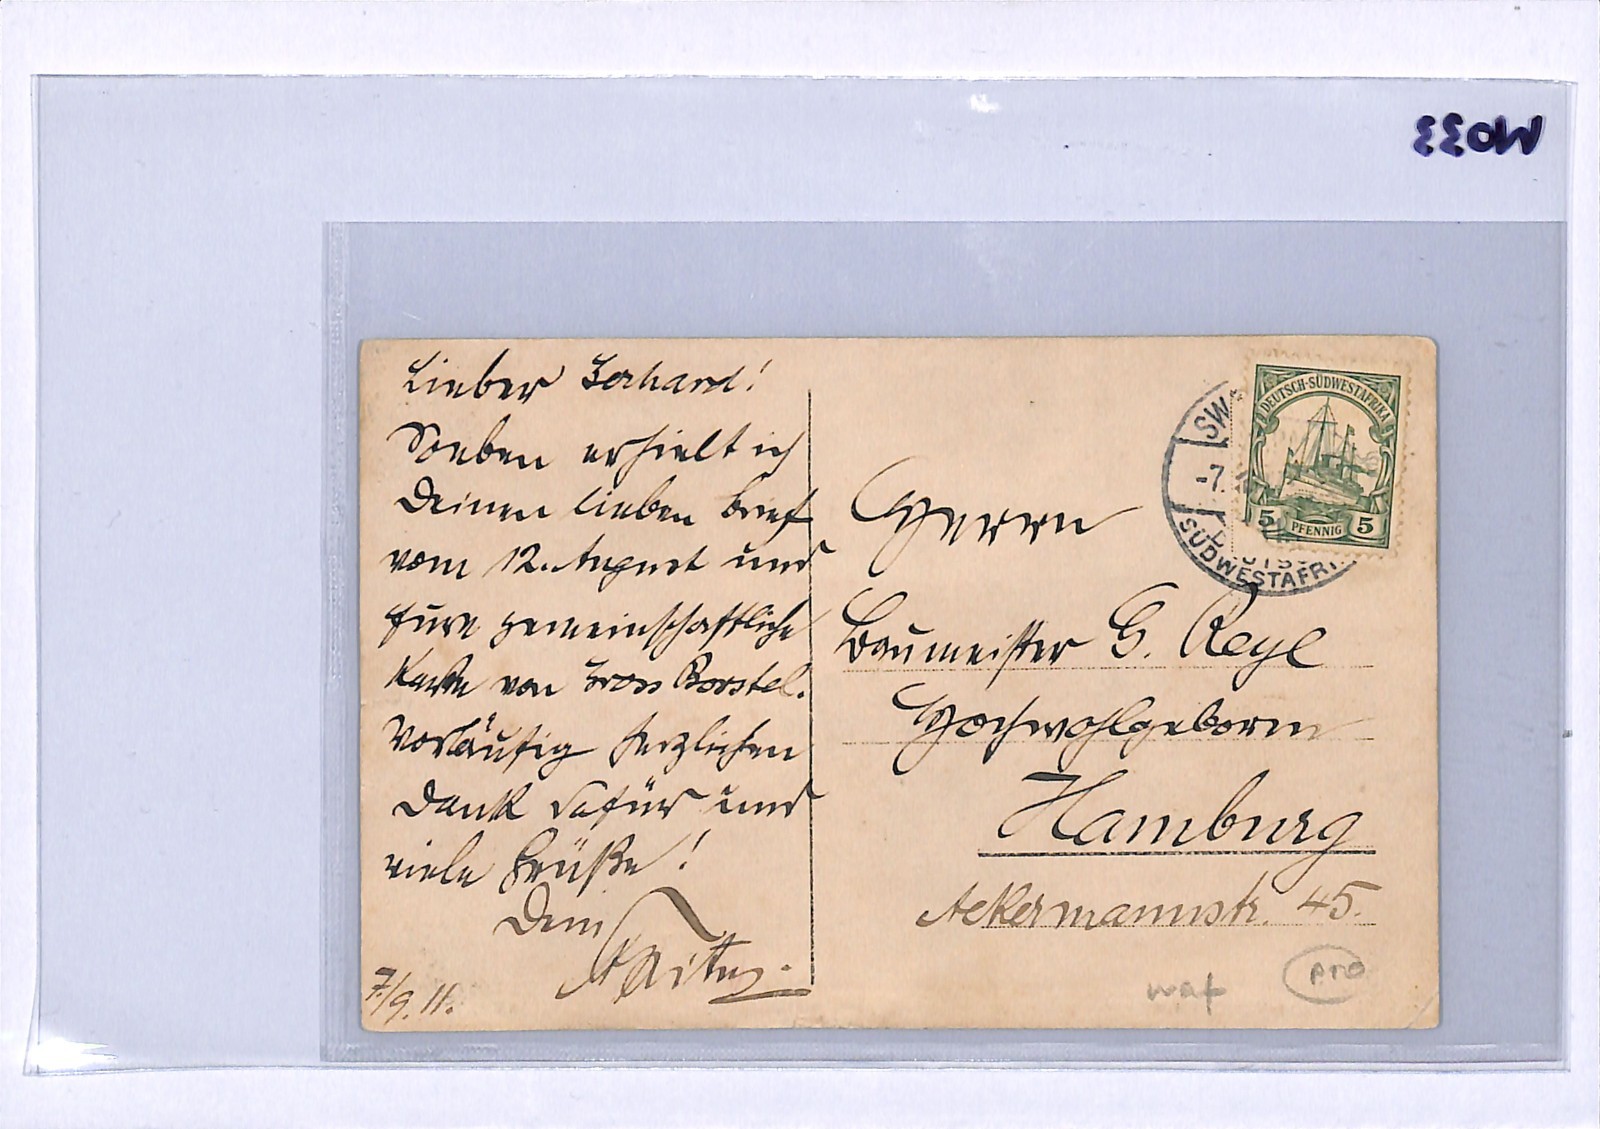 MO33
Lieber Gerhard!
Soeben erhielt ich
Deinen lieben Brief
vom 12. August und
Eure gemeinschaftliche
Karte von Gross Borstel.
Vorläufig herzlichen
Dank dafür und
viele Grüße!
Dein
7./9. 11.
SW
-7.
SÜDWESTAFRI
DEUTSCH-SÜDWESTAFRIKA
5 PFENNIG 5
Herrn
Baumeister G. Reye
Hochwohlgeboren
Hamburg
Ackermannstr. 45.
waf